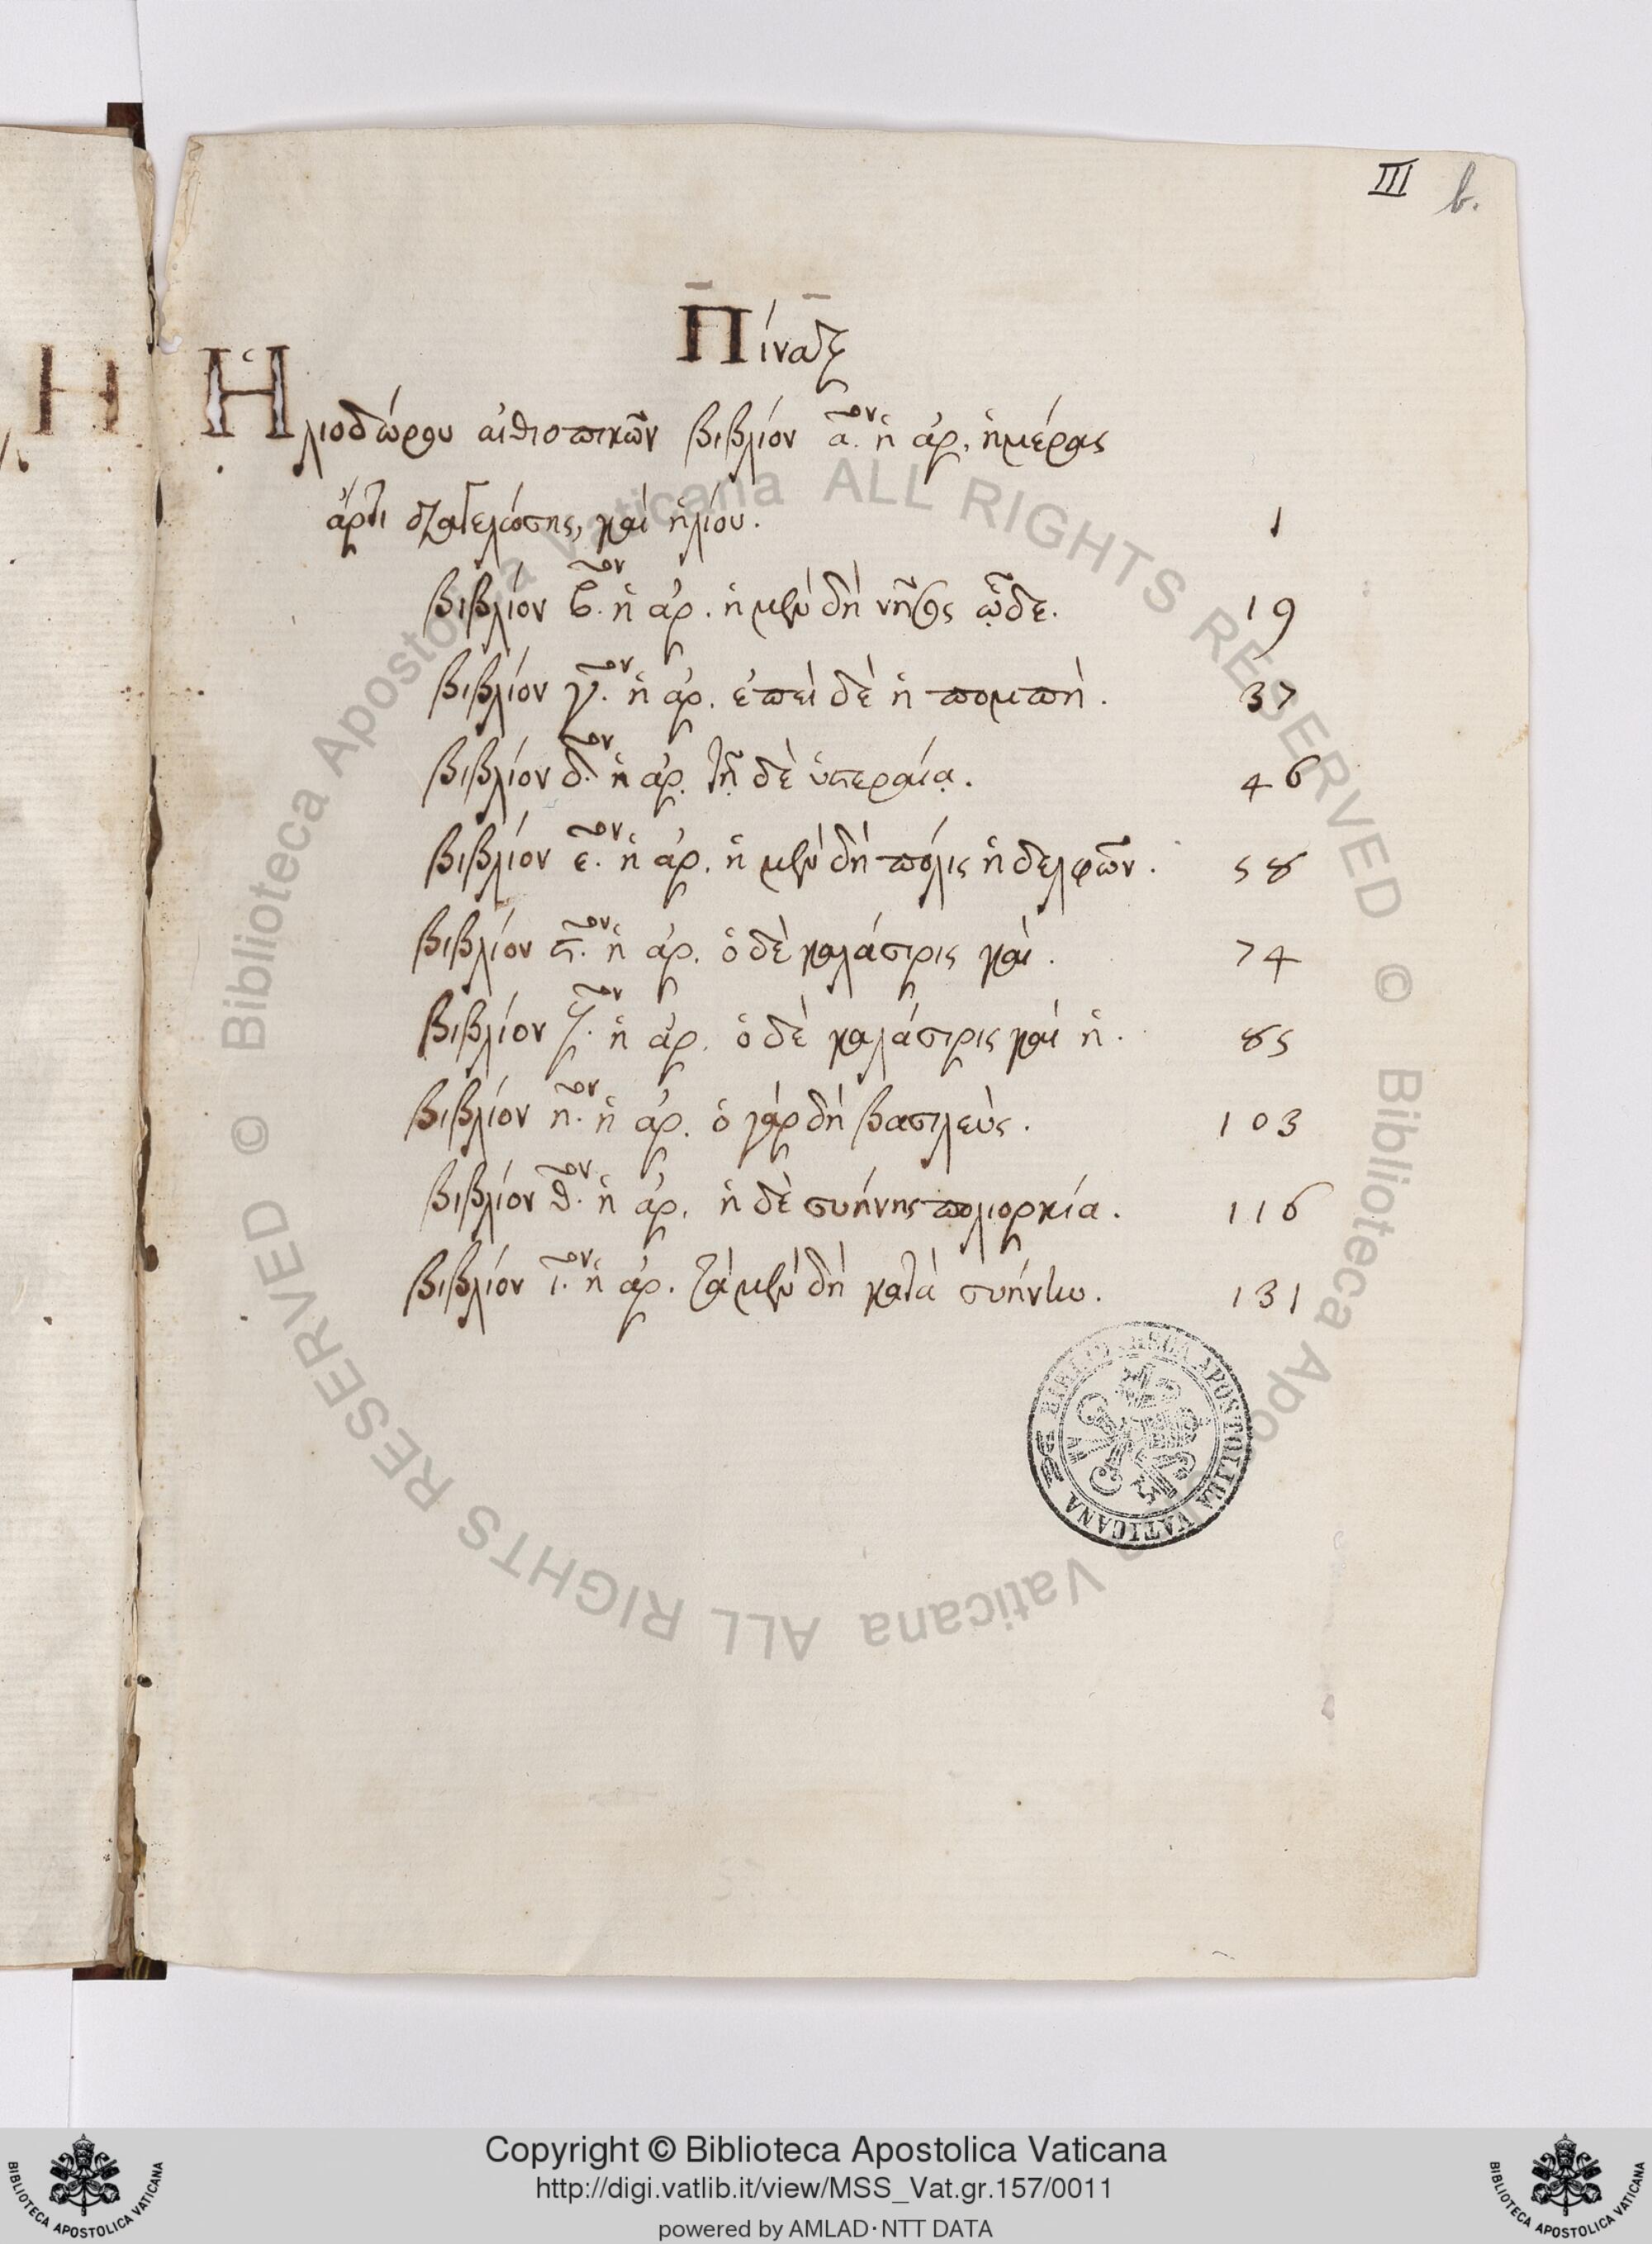 III b.
Πίναξ
Ἡλιοδώρου αἰθιοπικῶν βιβλίον α̅ον. ἡ ἀρ. ἡμέρας
ἄρτι διαγελώσης, καὶ ἡλίου. 1
βιβλίον β̅ον. ἡ ἀρ. ἡ μὲν δὴ νῆσος ὧδε. 19
βιβλίον γ̅ον. ἡ ἀρ. ἐπεὶ δὲ ἡ πομπὴ. 37
βιβλίον δ̅ον. ἡ ἀρ. τῇ δὲ ὑστεραίᾳ. 46
βιβλίον ε̅ον. ἡ ἀρ. ἡ μὲν δὴ πόλις ἡ δελφῶν. 58
βιβλίον ϛ̅ον. ἡ ἀρ. ὁ δὲ καλάσιρις καὶ. 74
βιβλίον ζ̅ον. ἡ ἀρ. ὁ δὲ καλάσιρις καὶ ἡ. 85
βιβλίον η̅ον. ἡ ἀρ. ὁ γὰρ δὴ βασιλεὺς. 103
βιβλίον θ̅ον. ἡ ἀρ. ἡ δὲ συήνης πολιορκία. 116
βιβλίον ι̅ον. ἡ ἀρ. τὰ μὲν δὴ κατὰ συήνην. 131
BIBLIOTHECA APOSTOLICA VATICANA
© Biblioteca Apostolica Vaticana ALL RIGHTS RESERVED © Biblioteca Apostolica Vaticana ALL RIGHTS RESERVED
Copyright © Biblioteca Apostolica Vaticana
http://digi.vatlib.it/view/MSS_Vat.gr.157/0011
powered by AMLAD·NTT DATA
BIBLIOTECA APOSTOLICA VATICANA
BIBLIOTECA APOSTOLICA VATICANA